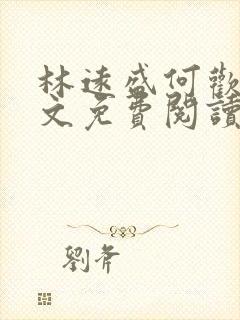 林遠盛何歡
文免費閱讀
劉斧